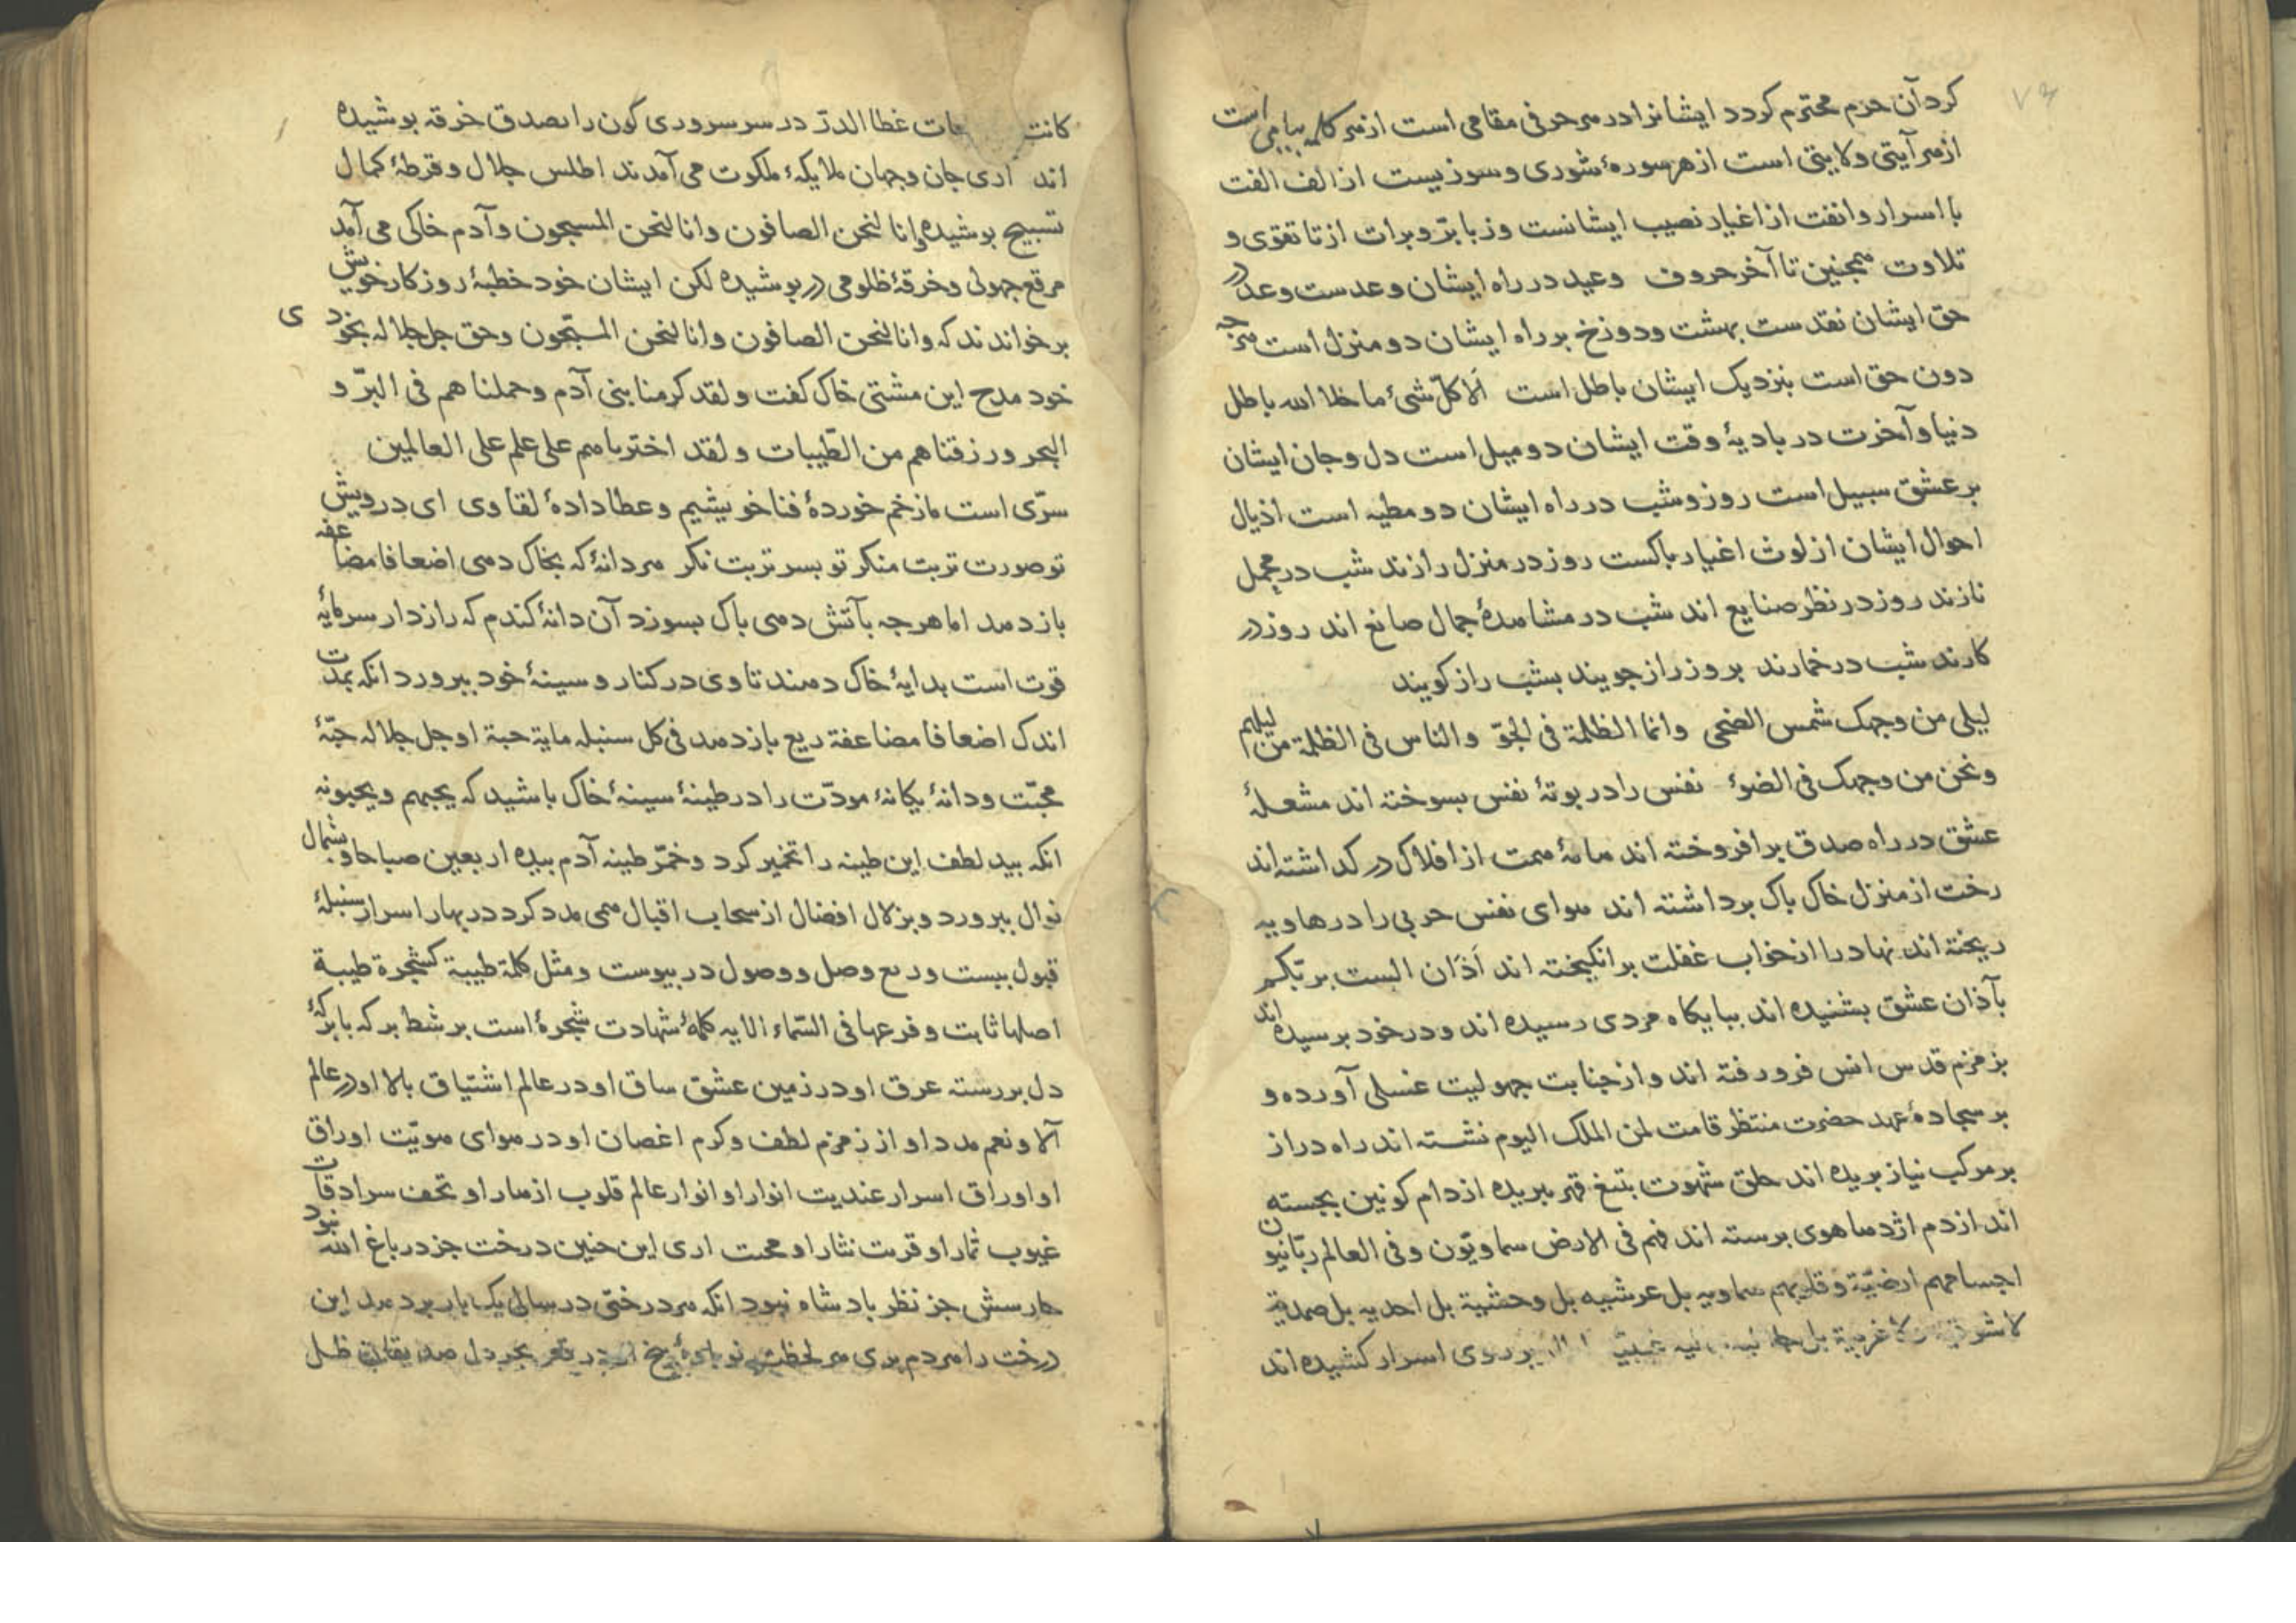 ۷۴
کرد آن حرم محترم کردد ایشانرا در هر حرفی مقامی است از هر کلمه پیامی است
از هر آیتی ولایتی است از هر سورهٔ شوری و سوزیست از الف الفت
با اسرار و انفت از اغیار نصیب ایشانست و ز با برّ و برات از تا تقوی و
تلاوت همچنین تا آخر حروف وعید در راه ایشان وعدست وعد در
حق ایشان نقدست بهشت و دوزخ بر راه ایشان دو منزل است هرجه
دون حق است بنزدیک ایشان باطل است اَلا کلّ شیٔ ما خلا الله باطل
دنیا و آخرت در بادیهٔ وقت ایشان دو میل است دل و جان ایشان
بر عشق سبیل است روز و شب در راه ایشان دو مطیه است اذیال
احوال ایشان از لوث اغیار باکست روز در منزل رازند شب در محمل
نازند روز در نظر صنایع اند شب در مشاهدهٔ جمال صانع اند روز در
کارند شب در خمارند بروز راز جویند بشب راز کویند
لیلی من وجهک شمس الضحی وانما الظلمة فی الجوّ والناس فی الظلمة من لیلهم
ونحن من وجهک فی الضؤ نفس را در بوتهٔ نفس بسوخته اند مشعلهٔ
عشق در راه صدق برافروخته اند همت از افلاک در کداشته اند
رخت از منزل خاک باک برداشته اند هوای نفس حربی را در هاویه
ریخته اند نهاد را از خواب غفلت برانکیخته اند اَذَان الست بربّکم
بآذان عشق بشنیده اند ببایکاه مردی رسیده اند و در خود برسیده اند
بزمزم قدس انس فرو رفته اند و از جنابت جهولیت غسلی آورده و
بر سجادهٔ عهد حضرت منتظر قامت لمن الملک الیوم نشسته اند راه دراز
بر مرکب نیاز بریده اند حلق شهوت بتیغ قهر ببریده از دام کونین بجسته
اند از دم اژدهاهوی برسته اند فهم فی الارض سماویّون وفی العالم ربّانیون
اجسامهم ارضیّة و قلوبهم سماویه بل عرشیه بل وحشیة بل احدیه بل صمدیة
لا شرقیة ولا غربیة بل بر روی اسرار کشیده اند
کانت غطا الدر در سر سروری کون را بصدق خرقه بوشیده
اند اری جان و جهان ملایکهٔ ملکوت می آمدند اطلس جلال و قرطهٔ کمال
تسبیح بوشیده وانا لنحن الصافون وانا لنحن المسبحون و آدم خاکی می آمد
مرقع جهولی و خرقهٔ ظلومی در بوشیده لکن ایشان خود خطبهٔ روزکار خویش
برخواندند که وانا لنحن الصافون وانا لنحن المسبّحون و حق جل جلاله بخودی
خود مدح این مشتی خاک کفت ولقد کرمنا بنی آدم وحملناهم فی البرّ و
البحر ورزقناهم من الطّیبات ولقد اخترناهم علی علم علی العالمین
سرّی است ما زخم خوردهٔ فنا خویشیم و عطا دادهٔ لقا وی ای درویش
تو صورت تربت منکر تو بسر تربت نکر هر دانهٔ که بخاک دهی اضعافا مضاعفه
باز دهد اما هرجه بآتش دهی باک بسوزد آن دانهٔ کندم که رازدار سرمایهٔ
قوت است بدایهٔ خاک دهند تا وی در کنار و سینهٔ خود ببرورد انکه بمدت
اندک اضعافا مضاعفة ریع باز دهد فی کل سنبله مایة حبة او جل جلاله حبّهٔ
محبّت و دانهٔ یکانهٔ مودّت را در طینهٔ سینهٔ خاک باشید که یحبهم ویحبونه
انکه بید لطف این طینه را تخمیر کرد وخمّر طینه آدم بیده اربعین صباحا و بشمال
نوال ببرورد و بزلال افضال از سحاب اقبال همی مدد کرد در بهار اسرار سنبلهٔ
قبول ببست و ریع وصل و وصول در بیوست ومثل کلمة طیبة کشجرة طیبة
اصلها ثابت وفرعها فی السّماء الایه کلمهٔ شهادت شجرهٔ است بر شط برکه بابرکهٔ
دل بررسته عرق او در زمین عشق ساق او در عالم اشتیاق بالا او در عالم
آلا و نعم مدد او از زمزم لطف و کرم اغصان او در هوای هویّت اوراق
او اوراق اسرار عندیت انوار او انوار عالم قلوب ازهار او تحف سرادقات
غیوب ثمار او قربت نثار او محبت اری این جنین درخت جز در باغ الله نبود
حارسش جز نظر بادشاه نبود انکه هر درختی در سالی یک بار بر دهد این
درخت را هر دم بری هر لحظت نو بیخ او در قعر بحر دل صدیقان ظل